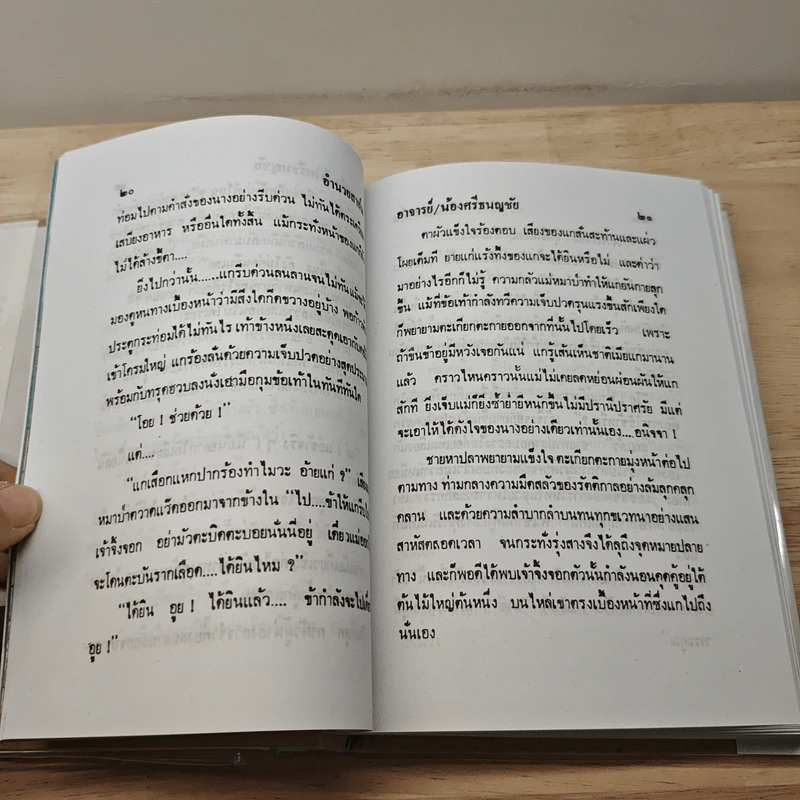 ๒๐
อำนวยสาส์น
ท่อมไปตามคำสั่งของนางอย่างรีบด่วน ไม่ทันได้ตระเตรียม
เสบียงอาหาร หรืออื่นใดทั้งสิ้น แม้กระทั่งหน้าของแกก็
ไม่ได้ล้างขี้ตา....
ยิ่งไปกว่านั้น......แกรีบด่วนลนลานจนไม่ทันแม้
มองดูหนทางเบื้องหน้าว่ามีสิ่งใดกีดขวางอยู่บ้าง พอก้าว
ประตูกระท่อมได้ไม่ทันไร เท้าข้างหนึ่งเลยสะดุดเอากับ
เข้าโครมใหญ่ แกร้องลั่นด้วยความเจ็บปวดอย่างสุด
พร้อมกับทรุดฮวบลงนั่งเอามือกุมข้อเท้าในทันทีทันใด
“โอย ! ช่วยด้วย !”
แต่....
“แกเสือกแหกปากร้องทำไมวะ อ้ายแก่ ?”
หมาบ้าตวาดแว๊ดออกมาจากข้างใน “ไป....ข้าให้แกรีบไป
เจ้าจิ้งจอก อย่ามัวตะบิดตะบอยนั่นนี่อยู่ เดี๋ยวแม่
จะโดนตะบันรากเลือด....ได้ยินไหม ?”
“ได้ยิน อุย ! ได้ยินแล้ว.... ข้ากำลังจะไป
อุย !”
อาจารย์/น้องศรีธนญชัย
๒๑
ตาผัวแข็งใจร้องตอบ เสียงของแกสั่นสะท้านและแผ่ว
โผยเต็มที ยายแก่แร้งทึ้งของแกจะได้ยินหรือไม่ และด่าว่า
มาอย่างไรอีกก็ไม่รู้ ความกลัวแม่หมาบ้าทำให้แกยันกายลุก
ขึ้น แม้ที่ข้อเท้ากำลังทวีความเจ็บปวดรุนแรงขึ้นสักเพียงใด
ก็พยายามตะเกียกตะกายออกจากที่นั้นไปโดยเร็ว เพราะ
ถ้าขืนช้าอยู่มีหวังเจอกันแน่ แกรู้เส้นเห็นชาติเมียแกมานาน
แล้ว คราวไหนคราวนั้นแม่ไม่เคยลดหย่อนผ่อนผันให้แก
สักที ยิ่งเจ็บแม่ก็ยิ่งซ้ำย่ำยีหนักขึ้นไม่มีปรานีปราศรัย มีแต่
จะเอาให้ได้ดังใจของนางอย่างเดียวเท่านั้นเอง....อนิจจา !
ชายหาปลาพยายามแข็งใจ ตะเกียกตะกายมุ่งหน้าต่อไป
ตามทาง ท่ามกลางความมืดสลัวของรัตติกาลอย่างล้มลุกคลุก
คลาน และด้วยความลำบากลำบนทนทุกขเวทนาอย่างแสน
สาหัสตลอดเวลา จนกระทั่งรุ่งสางจึงได้ลุถึงจุดหมายปลาย
ทาง และก็พอดีได้พบเจ้าจิ้งจอกตัวนั้นกำลังนอนคุดคู้อยู่ใต้
ต้นไม้ใหญ่ต้นหนึ่ง บนไหล่เขาตรงเบื้องหน้าที่ซึ่งแกไปถึง
นั่นเอง